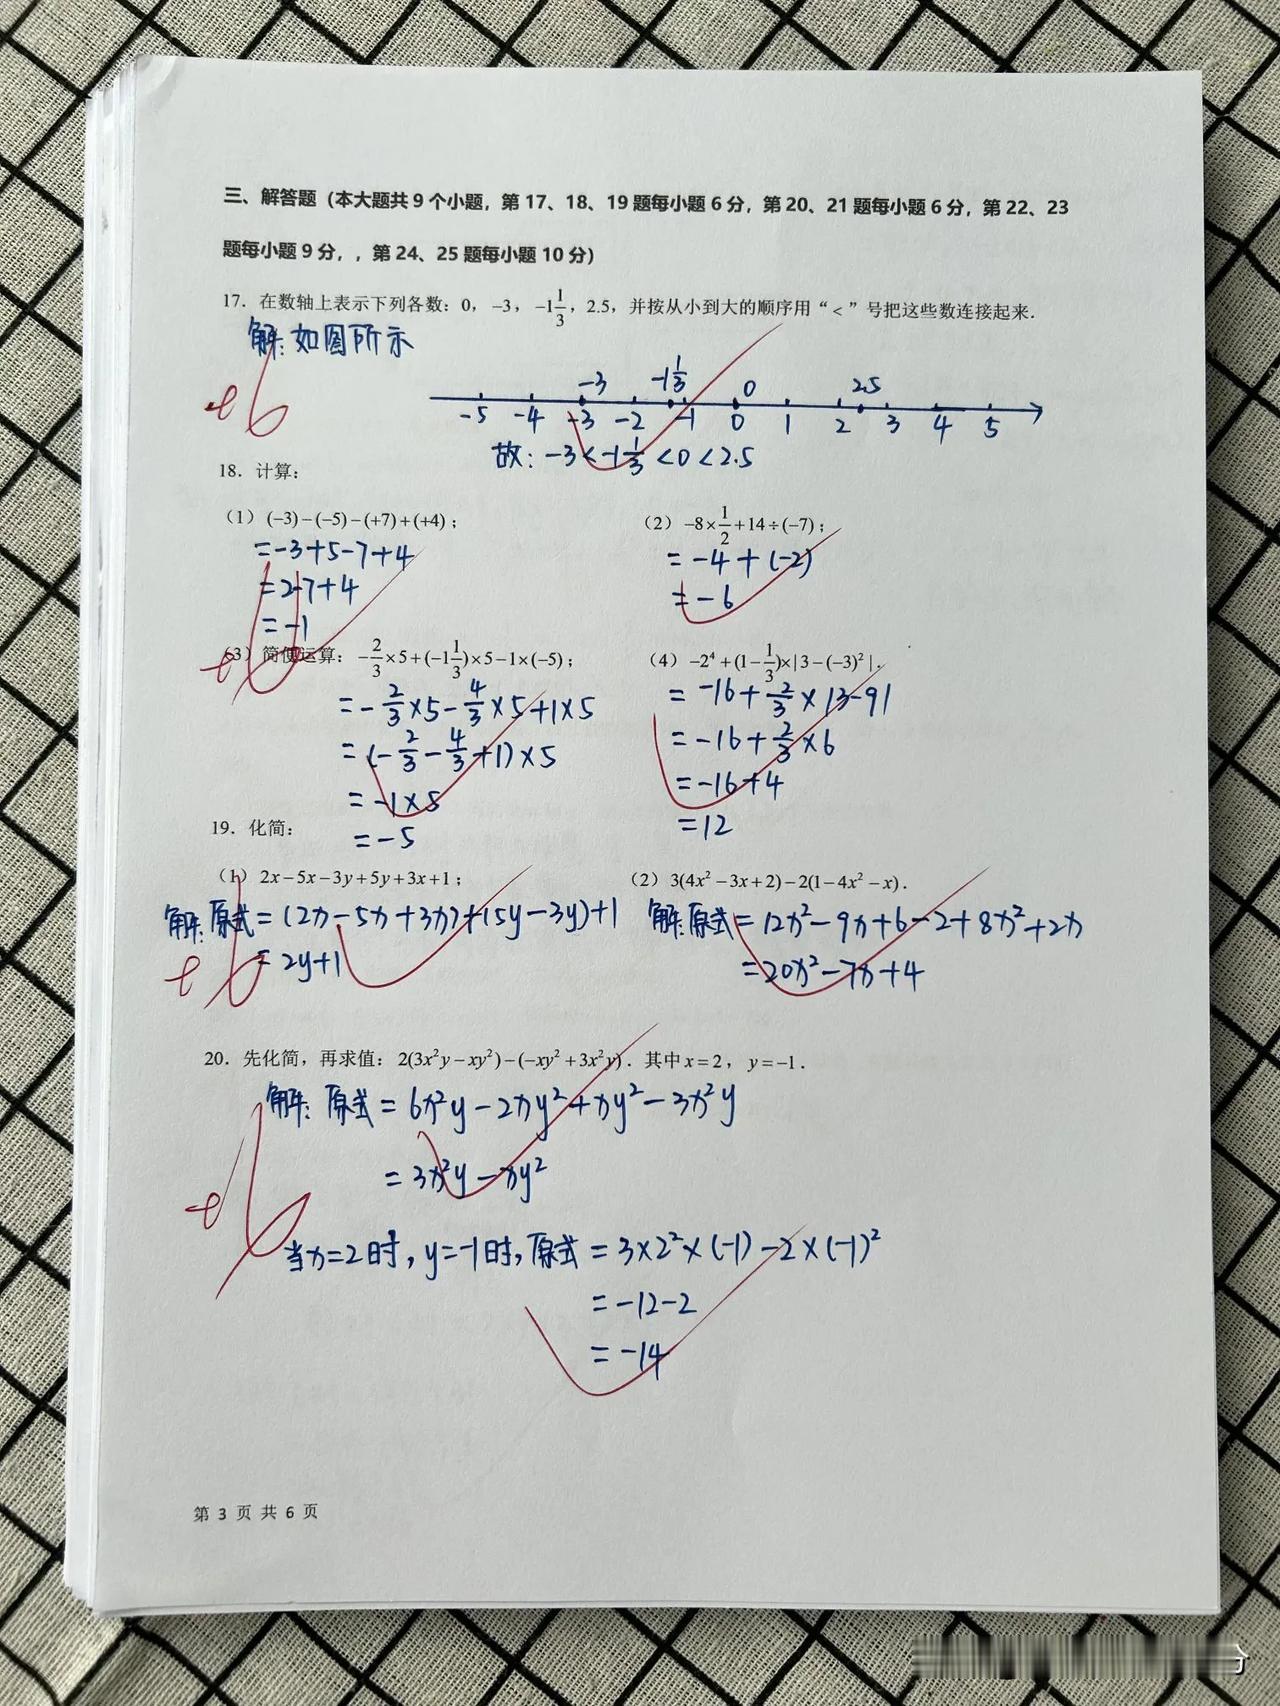 三、解答题（本大题共9个小题，第17、18、19题每小题6分，第20、21题每小题6分，第22、23
题每小题9分，，第24、25题每小题10分）
17. 在数轴上表示下列各数：0，-3，-1 1/3，2.5，并按从小到大的顺序用“<”号把这些数连接起来.
解：如图所示
+6
-3 -1 1/3 0 2.5
-5 -4 -3 -2 -1 0 1 2 3 4 5
故：-3<-1 1/3<0<2.5
18. 计算：
（1）(-3)-(-5)-(+7)+(+4)；
=-3+5-7+4
=2-7+4
=-1
（2）-8×1/2+14÷(-7)；
=-4+(-2)
=-6
（3）简便运算：-2/3×5+(-1 1/3)×5-1×(-5)；
=-2/3×5-4/3×5+1×5
=(-2/3-4/3+1)×5
=-1×5
=-5
（4）-2⁴+(1-1/3)×|3-(-3)²|.
=-16+2/3×|3-9|
=-16+2/3×6
=-16+4
=12
19. 化简：
（1）2x-5x-3y+5y+3x+1；
解：原式=(2x-5x+3x)+(5y-3y)+1
=2y+1
+6
（2）3(4x²-3x+2)-2(1-4x²-x).
解：原式=12x²-9x+6-2+8x²+2x
=20x²-7x+4
20. 先化简，再求值：2(3x²y-xy²)-(-xy²+3x²y). 其中x=2，y=-1.
解：原式=6x²y-2xy²+xy²-3x²y
=3x²y-xy²
+6
当x=2时，y=-1时，原式=3×2²×(-1)-2×(-1)²
=-12-2
=-14
第 3 页 共 6 页